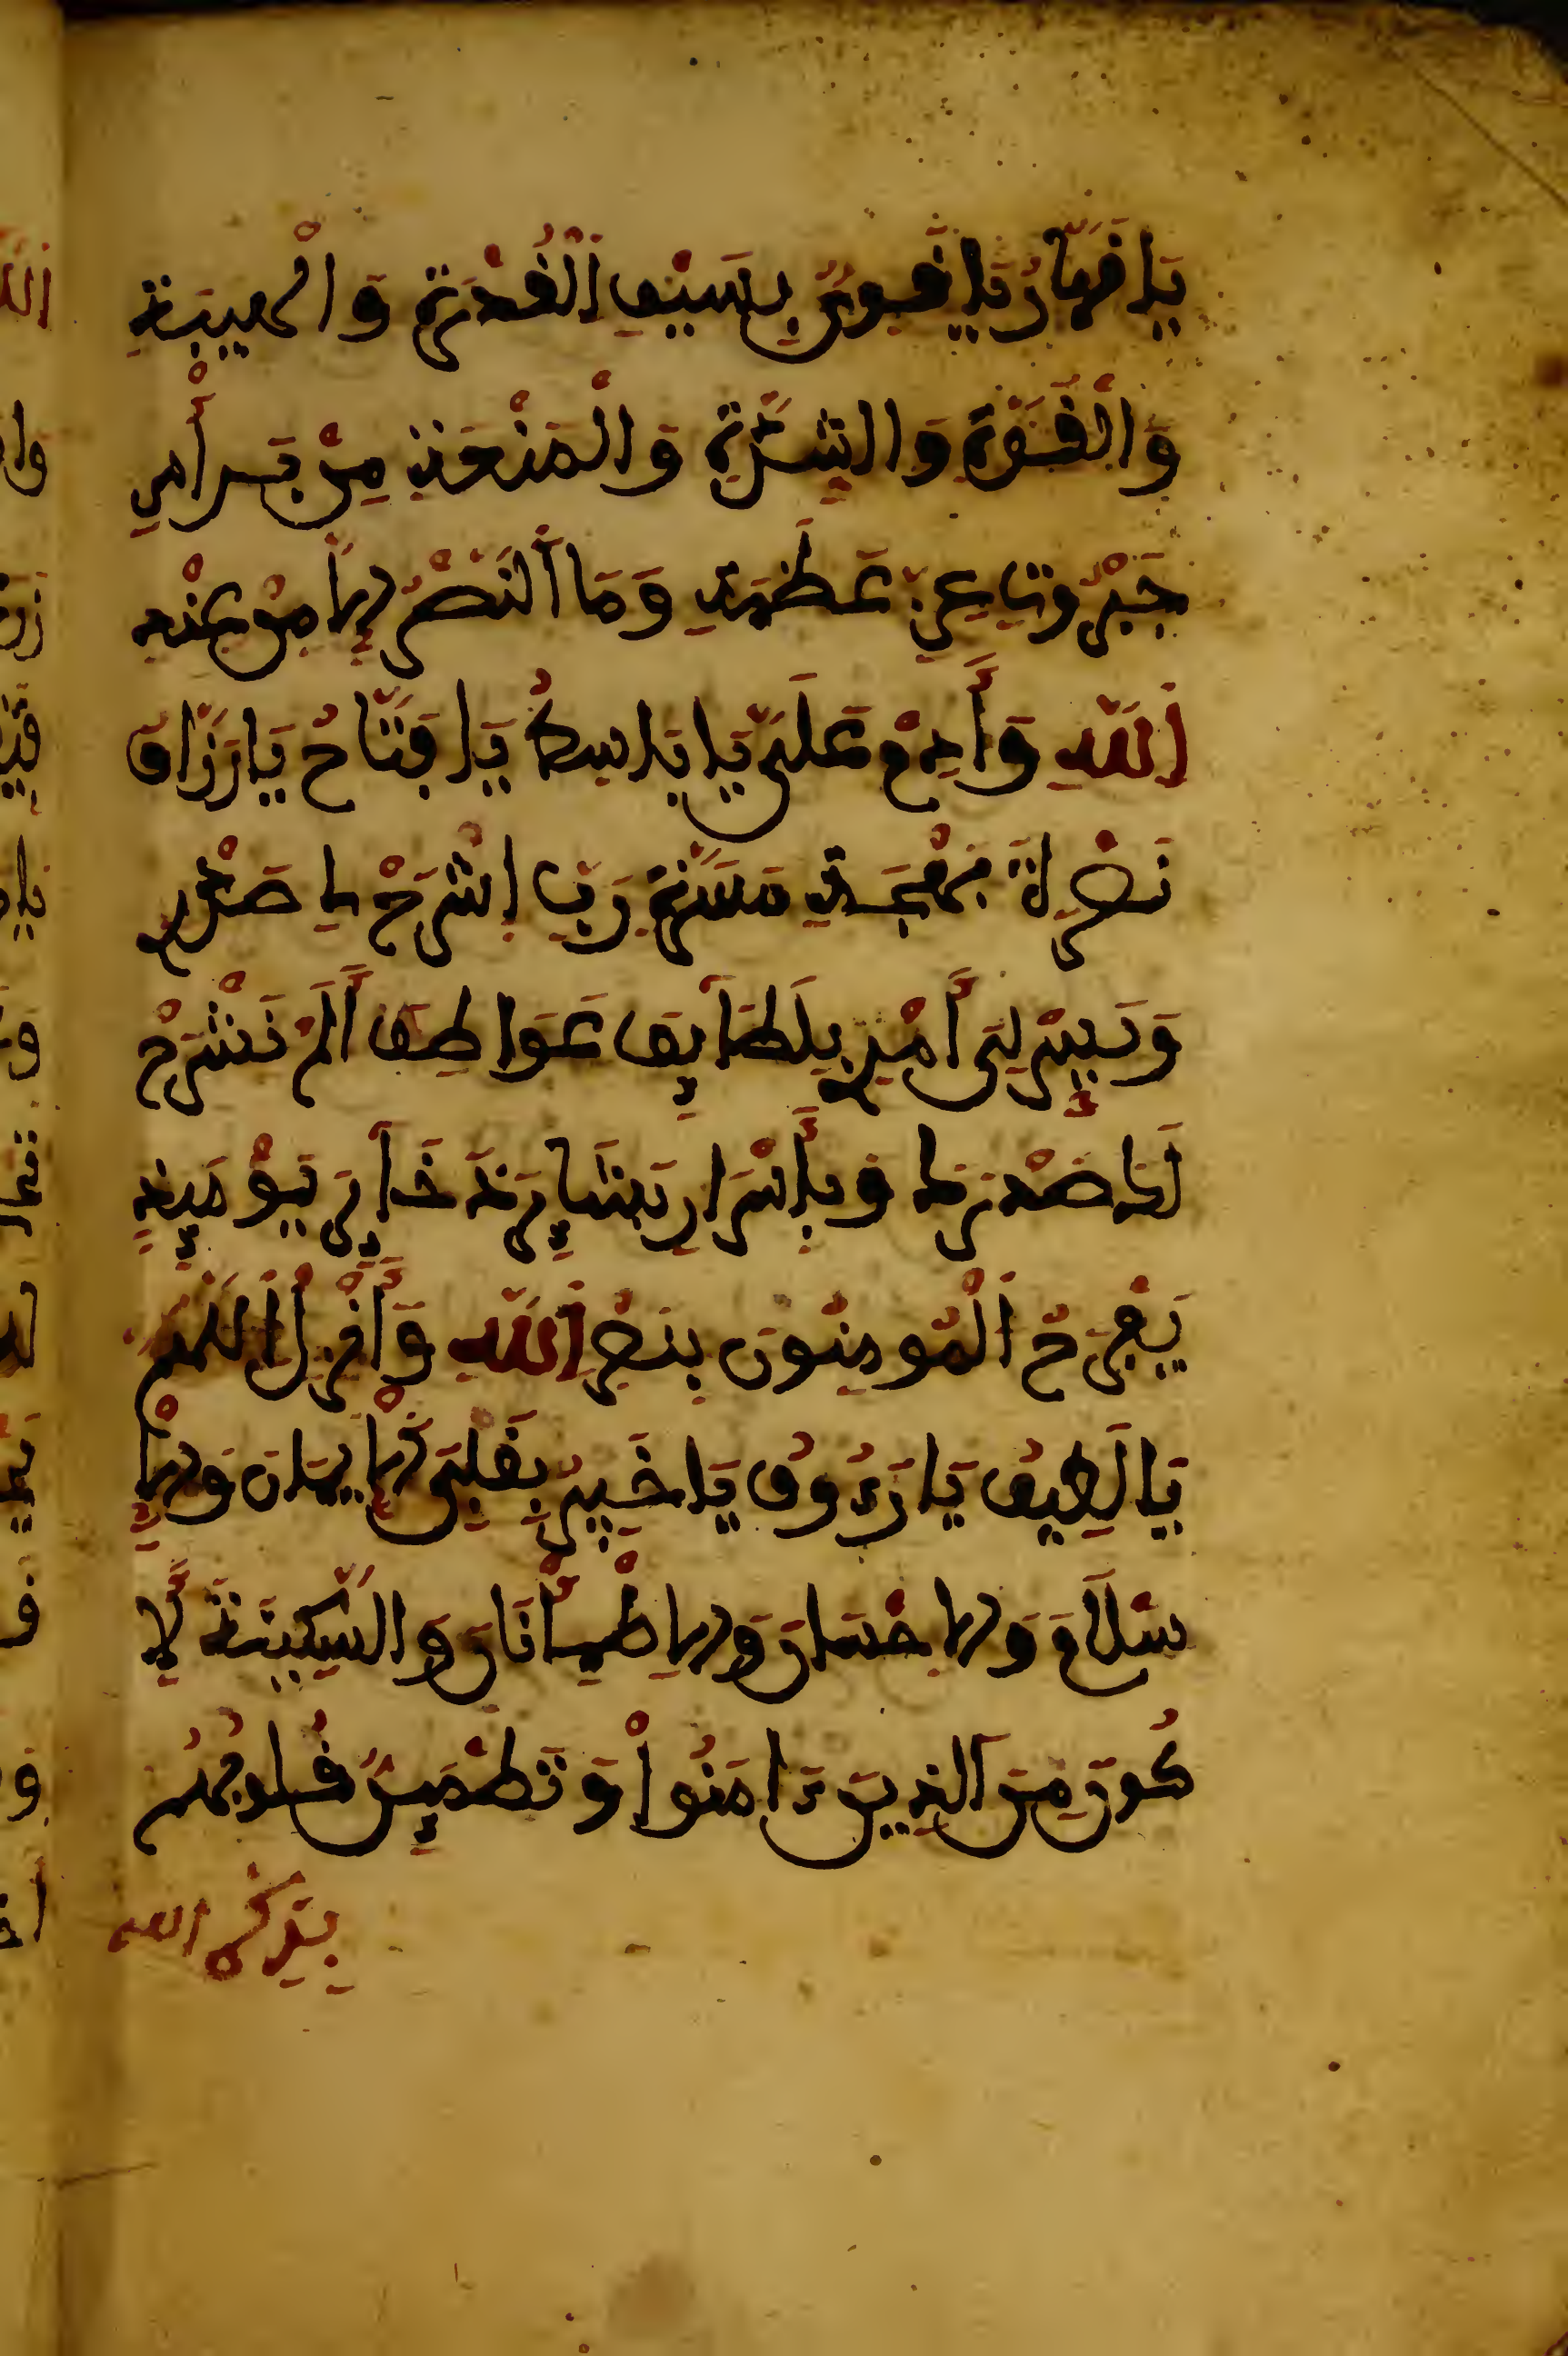 يَا قَهَّارُ يَا قَوِيُّ بِسَيْفِ الْقُدْرَةِ وَالْهَيْبَةِ
وَالْقُوَّةِ وَالشِّدَّةِ وَالْمَنْعَةِ مِنْ بَأْسِ
جَبَرُوتِ عِزِّ عَظَمَةِ وَمَا النَّصْرُ إِلَّا مِنْ عِنْدِ
اللَّهِ وَأَدِمْ عَلَيَّ يَا بَاسِطُ يَا فَتَّاحُ يَا رَزَّاقُ
بَهْجَةَ مَسَرَّةِ رَبِّ اشْرَحْ لِي صَدْرِي
وَيَسِّرْ لِي أَمْرِي بِلَطَائِفِ عَوَاطِفِ أَلَمْ نَشْرَحْ
لَكَ صَدْرَكَ وَبِأَسْرَارِ بَشَائِرِ يَوْمَئِذٍ
يَفْرَحُ الْمُومِنُونَ بِنَصْرِ اللَّهِ وَأَنْزِلِ اللَّهُمَّ
يَا لَطِيفُ يَا رَءُوفُ يَا خَبِيرُ بِقَلْبِي الْإِيمَانَ وَالْإِ
سْلَامَ وَالْإِحْسَانَ وَالْإِطْمِئْنَانَ وَالسَّكِينَةَ لِأَ
كُونَ مِنَ الَّذِينَ ءَامَنُوا وَتَطْمَئِنُّ قُلُوبُهُمْ
بِذِكْرِ الله